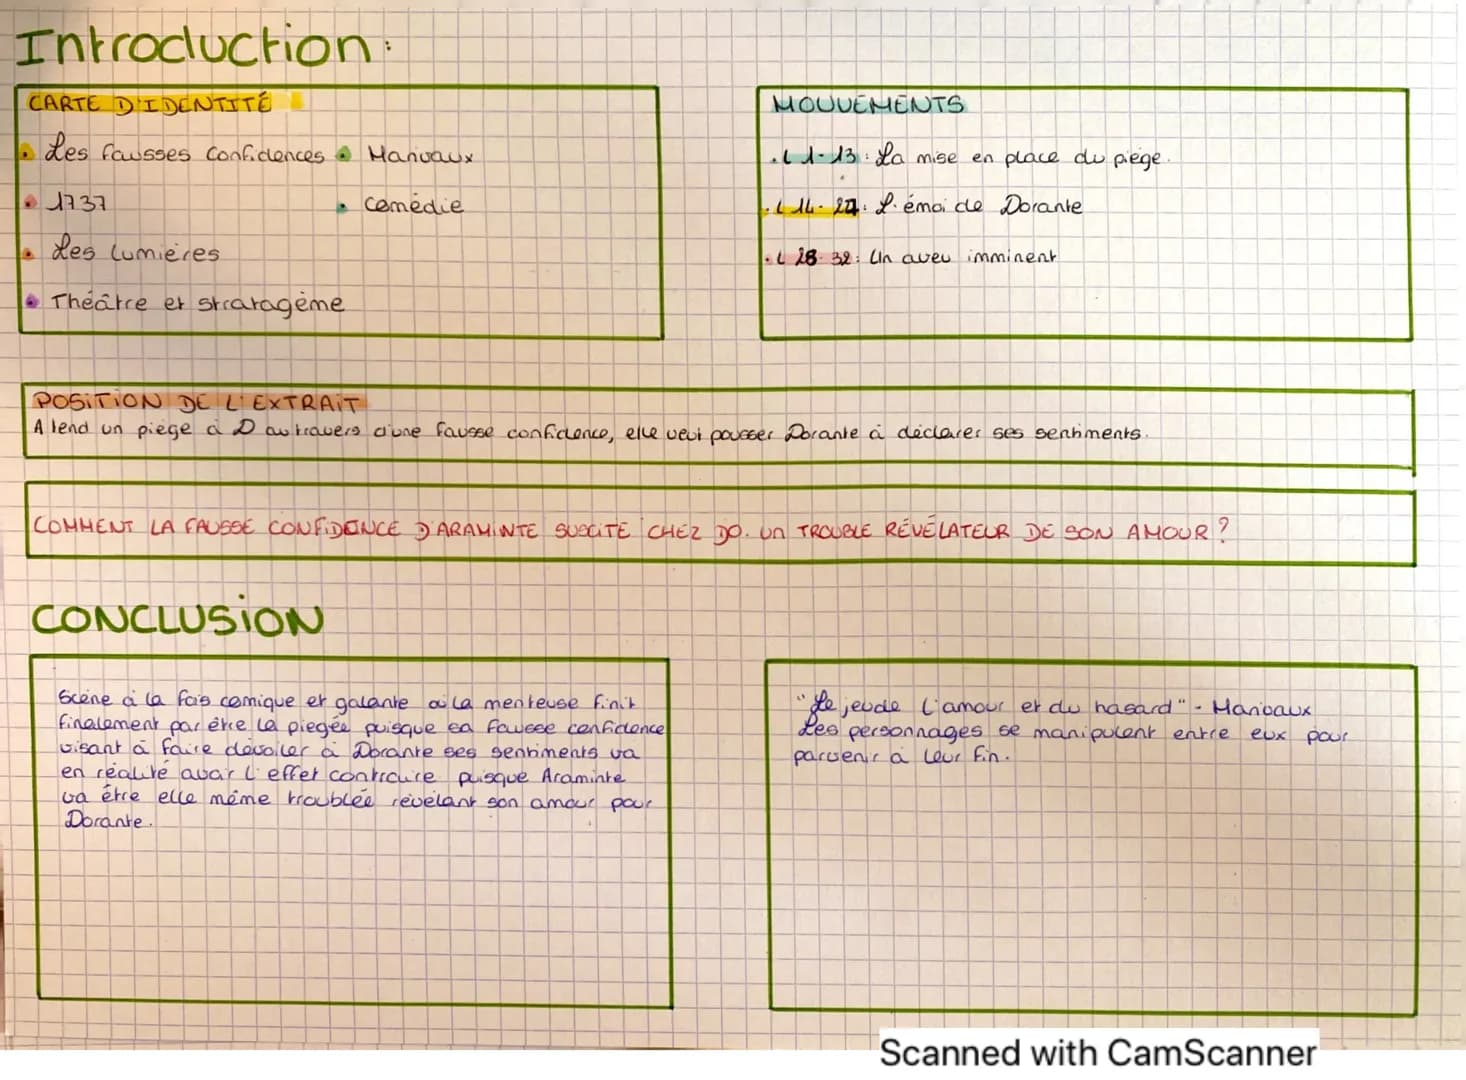 Introduction:
CARTE D'IDENTITÉ
Les fausses Confidences
Marivaux
1737
comédie
Les Lumières
Théâtre et stratagème
MOUVEMENTS
.L 1-13: La mise en place du piège.
.L 14-27: L'émoi de Dorante
.L 28-32: Un aveu imminent
POSITION DE L'EXTRAIT
A tend un piège à D au travers d'une fausse confidence, elle veut pousser Dorante à déclarer ses sentiments.
COMMENT LA FAUSSE CONFIDENCE D'ARAMINTE SUSCITE CHEZ DO. un TROUBLE RÉVÉLATEUR DE SON AMOUR?
CONCLUSION
Scène à la fois comique et galante où la menteuse finit
finalement par être la piegée puisque sa fausse confidence
visant à faire dévoiler à Dorante ses sentiments va
en réalité avoir l'effet contraire puisque Araminte
va être elle même troublée révélant son amour pour
Dorante.
"Le jeu de l'amour et du hasard" - Marivaux
Les personnages se manipulent entre eux pour
parvenir à leur fin.
Scanned with CamScanner